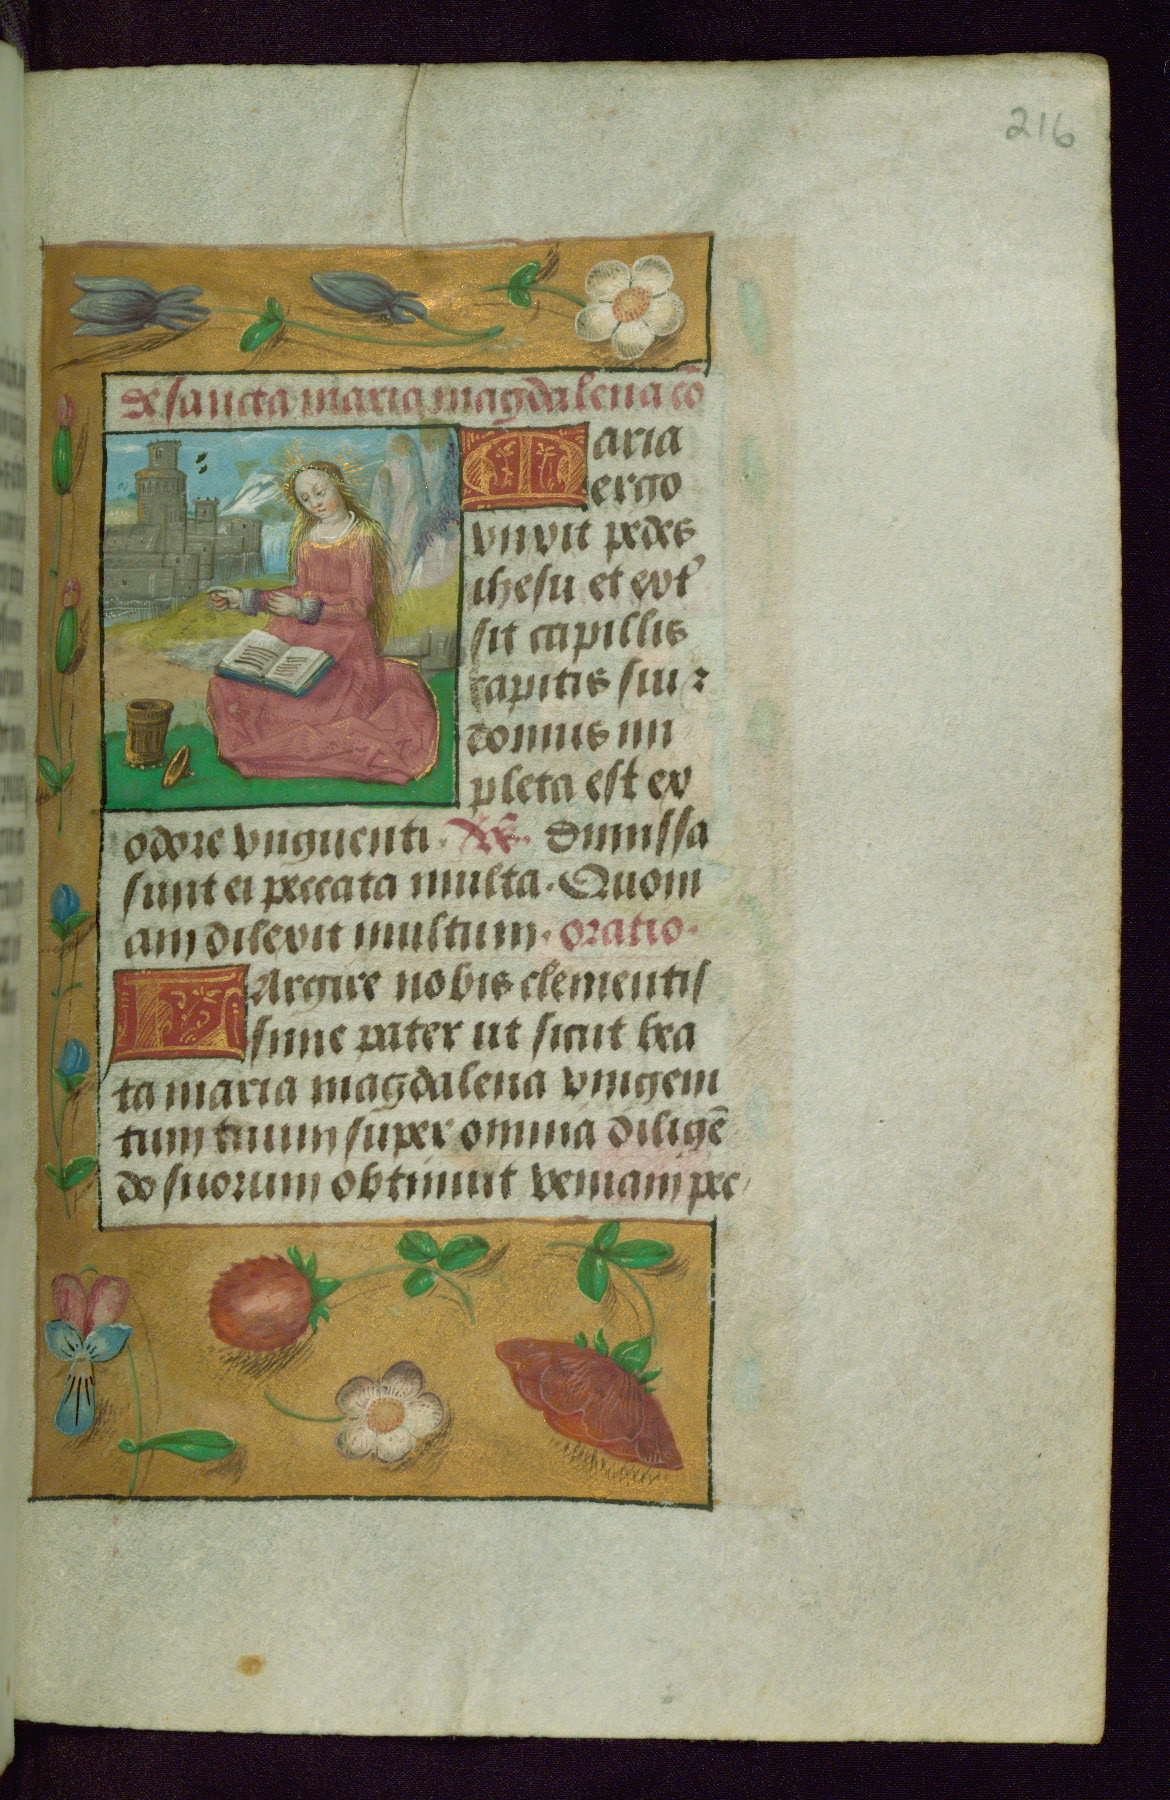 216
De sancta maria magdalena cō
Maria
ergo
vnvit pedes
ihesu et ext'
sit capillis
capitis sui ꝛ
domus im
pleta est ex
odore vnguenti. Dimissa
sunt ei peccata multa. Quom
am dilexit multum. oratio.
LArgire nobis clementis
sime pater ut sicut bea
ta maria magdalena vnigeni
tum tuum super omnia diligē
do suorum obtinuit veniam pec